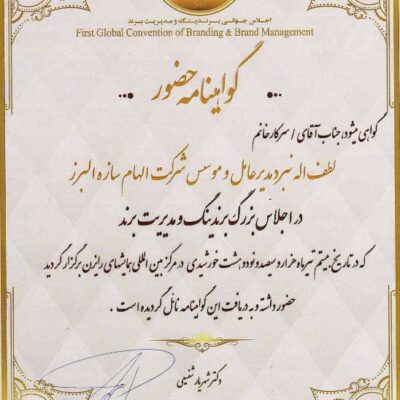 اجلاس جهانی برندینگ و مدیریت برند
First Global Convention of Branding & Brand Management
... گواهینامه حضور ...
گواهی میشود، جناب آقای / سرکار خانم
لطف اله نبرد مدیرعامل و موسس شرکت الهام سازه البرز
در اجلاس بزرگ برندینگ و مدیریت برند
که در تاریخ بیستم تیرماه هزار و سیصد و نود و هشت خورشیدی در مرکز بین المللی همایشهای رایزن برگزار گردید
حضور داشته و به دریافت این گواهینامه نائل گردیده است .
دکتر شهریار شفیعی